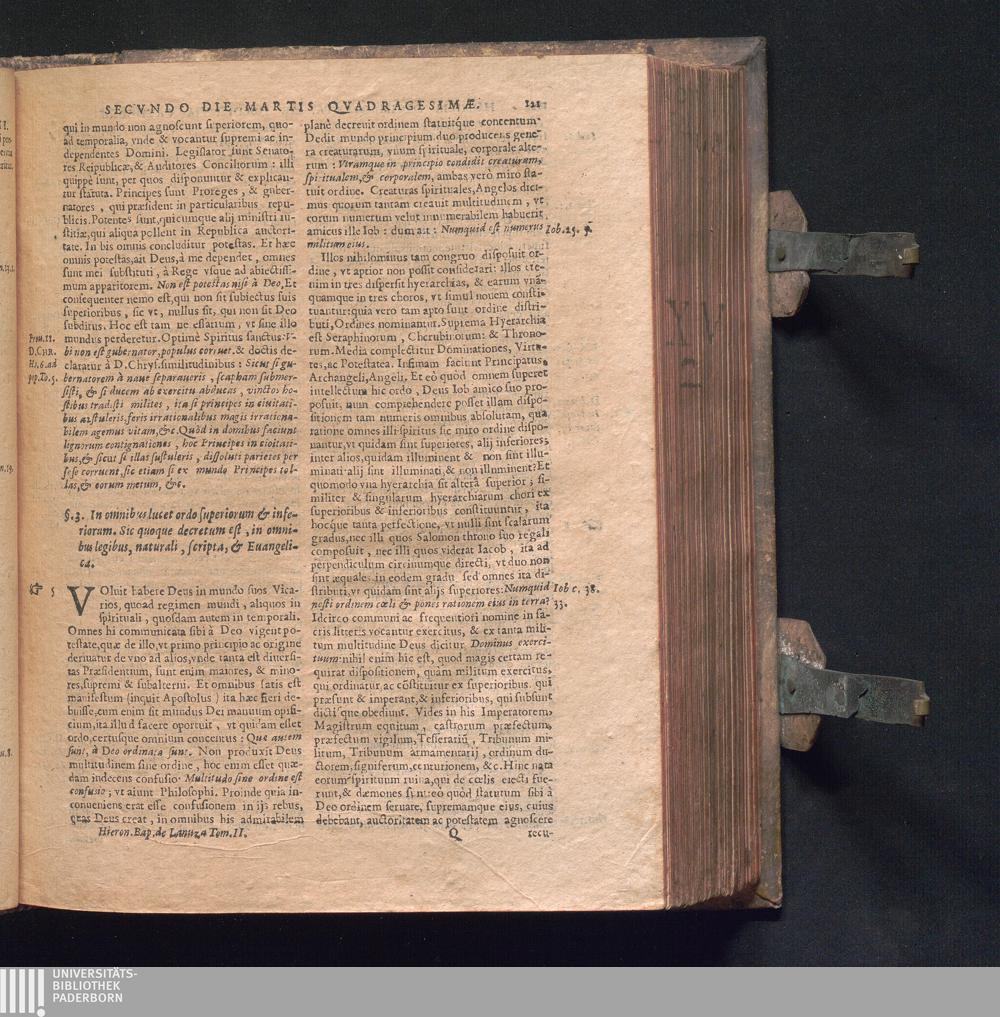 SECVNDO DIE MARTIS QVADRAGESIMÆ. 121
qui in mundo non agnoscunt superiorem, quo-
ad temporalia, vnde & vocantur supremi ac in-
dependentes Domini. Legislator sunt Senato-
res Reipublicæ, & Auditores Conciliorum : illi
quippè sunt, per quos disponuntur & explican-
tur statuta. Principes sunt Proreges, & guber-
natores, qui præsident in particularibus repu-
blicis. Potentes sunt, quicumque alij ministri iu-
stitiæ, qui aliqua pollent in Republica auctori-
tate. In bis omnis concluditur potestas. Et hæc
omnis potestas, ait Deus, à me dependet, omnes
sunt mei substituti, à Rege vsque ad abiectissi-
mum apparitorem. Non est potestas nisi à Deo. Et
consequenter nemo est, qui non sit subiectus suis
superioribus, sic vt, nullus sit, qui non sit Deo
subditus. Hoc est tam ne essarium, vt sine illo
mundus perderetur. Optimè Spiritus sanctus: V-
bi non est gubernator, populus corruet. & doctis de-
claratur à D. Chrys. similitudinibus : Sicut si gu-
bernatorem à naue separaueris, scapham submer-
sisti, & si ducem ab exercitu abducas, vinctos ho-
stibus tradisti milites, ita si principes in ciuitati-
bus abstuleris, feris irrationalibus magis irrationa-
bilem agemus vitam, &c. Quod in domibus faciunt
lignorum contignationes, hoc Principes in ciuitati-
bus, & sicut si illas sustuleris, dissoluti parietes per
sese corruent, sic etiam si ex mundo Principes tol-
las, & eorum metum, &c.
Prou.11.
D.CHR.
Ho.6.ad
pop.To.5.
§.3. In omnibus lucet ordo superiorum & infe-
riorum. Sic quoque decretum est, in omni-
bus legibus, naturali, scripta, & Euangeli-
ca.
☞ 5
VOluit habere Deus in mundo suos Vica-
rios, quoad regimen mundi, aliquos in
spirituali, quosdam autem in temporali.
Omnes hi communicata sibi à Deo vigent po-
testate, quæ de illo, vt primo principio ac origine
deriuatur de vno ad alios, vnde tanta est diuersi-
tas Præsidentium, sunt enim maiores, & mino-
res, supremi & subalterni. Et omnibus satis est
manifestum (inquit Apostolus) ita hæc fieri de-
buisse, cum enim sit mundus Dei manuum opifi-
cium, ita illud facere oportuit, vt quidam esset
ordo, certusque omnium concentus : Quæ autem
sunt, à Deo ordinata sunt. Non produxit Deus
multitudinem sine ordine, hoc enim esset quæ-
dam indecens confusio. Multitudo sine ordine est
confusio; vt aiunt Philosophi. Proinde quia in-
conueniens erat esse confusionem in ijs rebus,
quas Deus creat, in omnibus his admirabilem
Hieron. Bap. de Lanuza Tom. II.
planè decreuit ordinem statuitque concentum.
Dedit mundo principium duo producens gene-
ra creaturarum, vnum spirituale, corporale alte-
rum : Vtramque in principio condidit creaturam,
spiritualem, & corporalem, ambas verò miro sta-
tuit ordine. Creaturas spirituales, Angelos dici-
mus quorum tantam creauit multitudinem, vt
eorum numerum velut innumerabilem habuerit
amicus ille Iob : dum ait : Numquid est numerus
militum eius.
Iob. 25. 3.
Illos nihilominus tam congruo disposuit or-
dine, vt aptior non possit considerari: illos ete-
nim in tres dispersit hyerarchias, & earum vnā-
quamque in tres choros, vt simul nouem consti-
tuantur: quia vero tam apto sunt ordine distri-
buti, Ordines nominantur. Suprema Hyerarchia
est Seraphinorum, Cherubinorum: & Throno-
rum. Media complectitur Dominationes, Virtu-
tes, ac Potestatea. Infimam faciunt Principatus,
Archangeli, Angeli. Et eò quòd omnem superet
intellectum hic ordo, Deus Iob amico suo pro-
posuit, num comprehendere posset illam dispo-
sitionem tam numeris omnibus absolutam, qua
ratione omnes illi spiritus sic miro ordine dispo-
nantur, vt quidam sint superiores, alij inferiores;
inter alios, quidam illuminent & non sint illu-
minati: alij sint illuminati, & non illuminent? Et
quomodo vna hyerarchia sit alterâ superior; si-
militer & singularum hyerarchiarum chori ex
superioribus & inferioribus constituuntur, ita
hocque tanta perfectione, vt nulli sint scalarum
gradus, nec illi quos Salomon throno suo regali
composuit, nec illi quos viderat Iacob, ita ad
perpendiculum circinumque directi, vt duo non
sint æquales in eodem gradu sed omnes ita di-
stributi, vt quidam sint alijs superiores: Numquid
nosti ordinem cœli & pones rationem eius in terra?
Iob c. 38.
33.
Idcirco communi ac frequentiori nomine in sa-
cris litteris vocantur exercitus, & ex tanta mili-
tum multitudine Deus dicitur Dominus exerci-
tuum: nihil enim hic est, quod magis certam re-
quirat dispositionem, quàm militum exercitus,
qui ordinatur, ac cōstituitur ex superioribus qui
præsunt & imperant, & inferioribus, qui subsunt
dictisque obediunt. Vides in his Imperatorem,
Magistrum equitum, castrorum præfectum,
præfectum vigilum, Tesserariū, Tribunum mi-
litum, Tribunum armamentarij, ordinum du-
ctorem, signiferum, centurionem, &c. Hinc nata
eorum spirituum ruina, qui de cœlis eiecti fue-
runt, & dæmones sunt eo quòd statutum sibi à
Deo ordinem seruare, supremamque eius, cuius
debebant, auctoritatem ac potestatem agnoscere
Q recu-
XV
UNIVERSITÄTS-
BIBLIOTHEK
PADERBORN